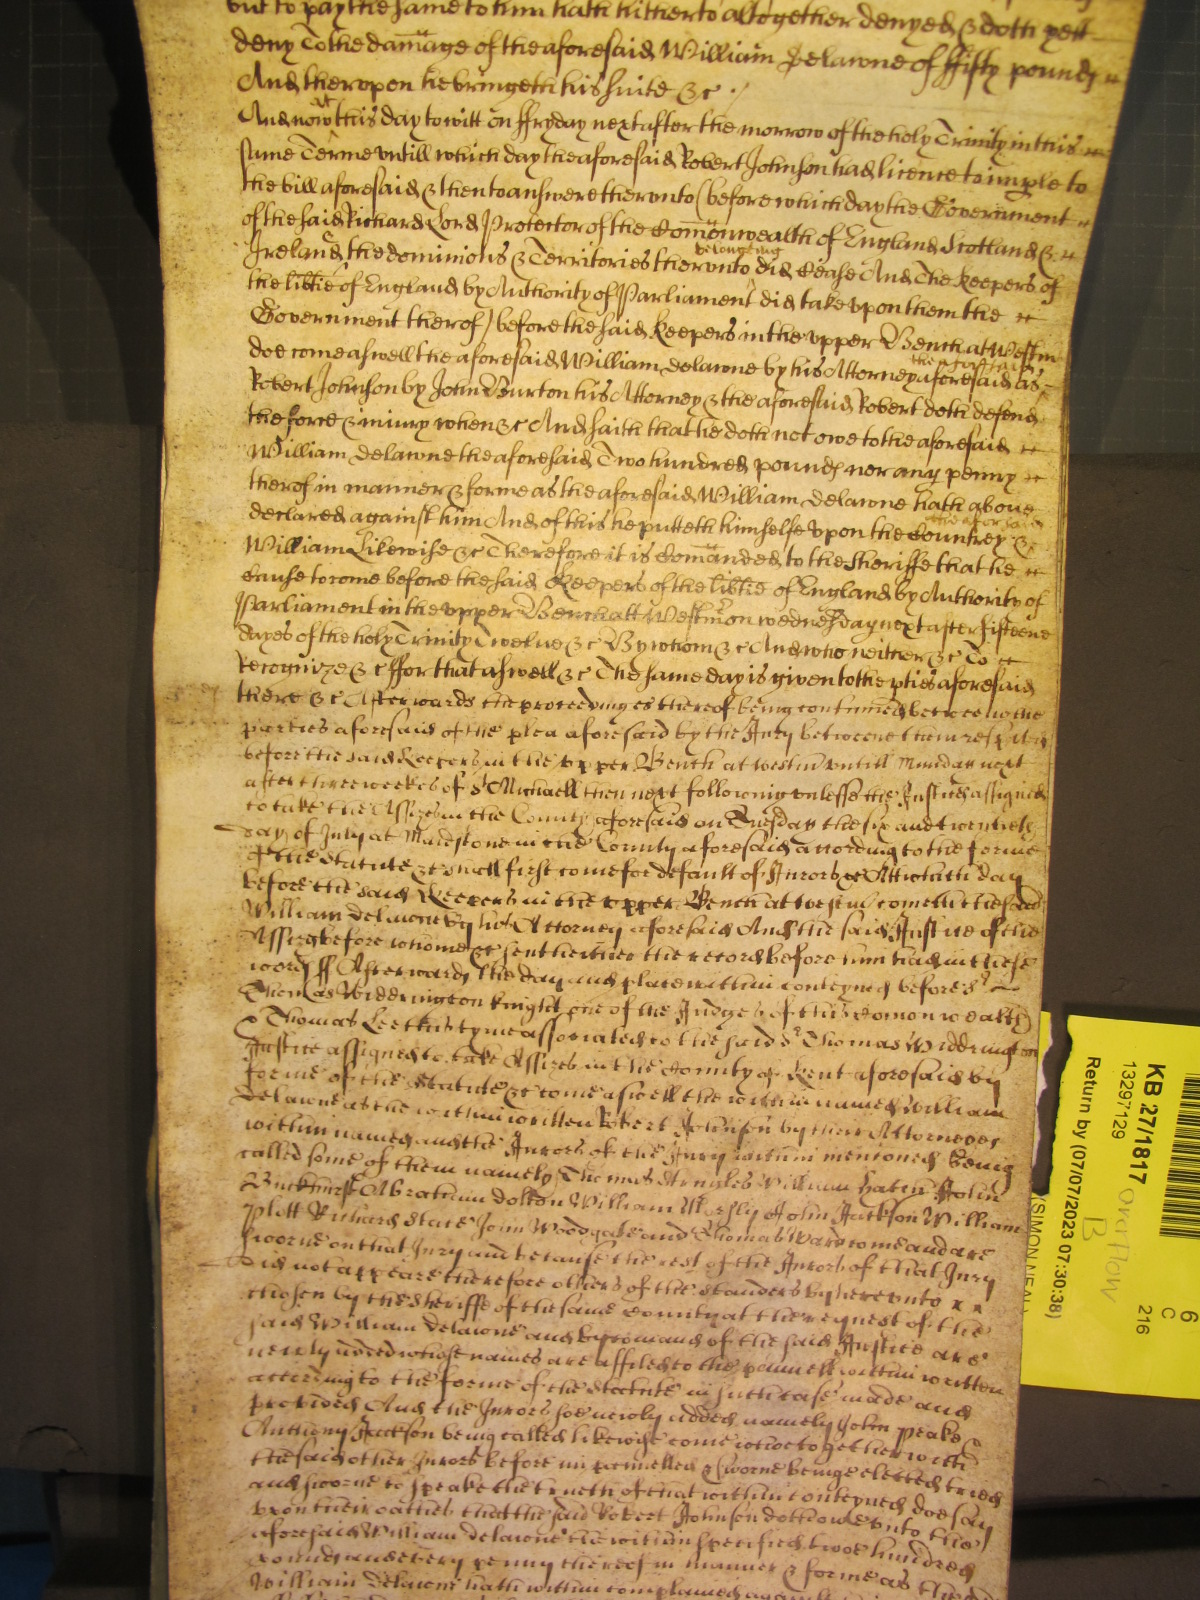 but to pay the same to him hath hitherto altogether denyed & doth yett
deny To the damage of the aforesaid William Delawne of ffifty pounds
And therupon he bringeth his suite &c
And now att this day to witt on ffryday next after the morrow of the holy Trinity in this
same Terme vntill which day the aforesaid Robert Johnson had licence to imple to
the bill aforesaid & then to answere thervnto (before which day the Government
of the said Richard Lord Protector of the Comonwealth of England Scotland &
Ireland & the dominions & Territories thervnto belonging did cease And The keepers of
the libtie of England by Authority of Parliament did take vpon them the
Government therof) before the said keepers in the vpper Bench at Westm
doe come aswell the aforesaid William delawne by his Attorney aforesaid as the aforesaid
Robert Johnson by John Burton his Attorney & the aforesaid Robert doth defend
the force & iniury when &c And saith that he doth not owe to the aforesaid
William delawne the aforesaid Two hundred pounds nor any penny
therof in manner & forme as the aforesaid William delawne hath aboue
declared against him And of this he putteth himselfe vpon the Countrey & the aforesaid
William Likewise &c Therefore it is Comanded to the Sheriffe that he
Cause to come before the said Keepers of the libtie of England by Authority of
Parliament in the vpper Bench att Westm on wednesday next after fifteene
dayes of the holy Trinity Twelve &c By whom &c And who neither &c To
Recognize &c ffor that aswell &c The same day is given to the pties aforesaid
there &c Afterwards the proceedinges thereof being continued betweene the
parties aforesaid of the plea aforesaid by the Jury betweene them respited
before the said Keepers in the vpper Bench at westm vntill Munday next
after three weekes of St Michaell then next following vnlesse the Justices assigned
to take the Assizes in the County aforesaid on Tuesday the six and twentieth
day of July at Maidstone in the County aforesaid according to the forme
of the statute &c shall first come for default of Jurors &c Att which day
before the said Keepers in the vpper Bench at westm cometh the said
William delawne by his Attorney aforesaid And the said Justice of the
Assizes before whome &c sent hether the record before him had in these
words ss Afterwards the day and place within conteyned before Sr
Thomas Widdrington knight one of the Judges of this Comonwealth
Thomas Lee this tyme associated to the said Sr Thomas Widdrington
Justice assigned to take Assizes in the County of Kent aforesaid by
forme of the Statute &c come aswell the within named William
delawne as the within written Robert Johnson by their Attorneyes
within named and the Jurors of the Jury within mentioned being
called some of them namely Thomas William Haten John
Buckhurst Abraham dolton William John Jackson William
plott Richard State John Woodgate and Thomas Ward come and are
sworne on that Jury and because the rest of the Jurors of that Jury
did not appeare therefore others of the standers by herevnto
chosen by the Sheriffe of the same County at the request of the
said William delawne and by comand of the said Justice are
newly added whose names are affiled to the pannell within written
according to the forme of the Statute in such case made and
provided And the Jurors soe newly added namely John peake
Anthony Jackson being called likewise come whoe together with
the said other Jurors before impannelled & sworne beinge elected tried
and sworne to speake the truth of that within conteyned doe say
vpon their oathes that the said Robert Johnson doth owe vnto the
aforesaid William delawne the within specified twoe hundred
pounds and every penny thereof in manner & forme as the
William delawne hath within complained
KB 27/1817
13297129
Return by (07/07/2023 07:30:38)
(SIMON NEAL)
overflow
B
6
C
216